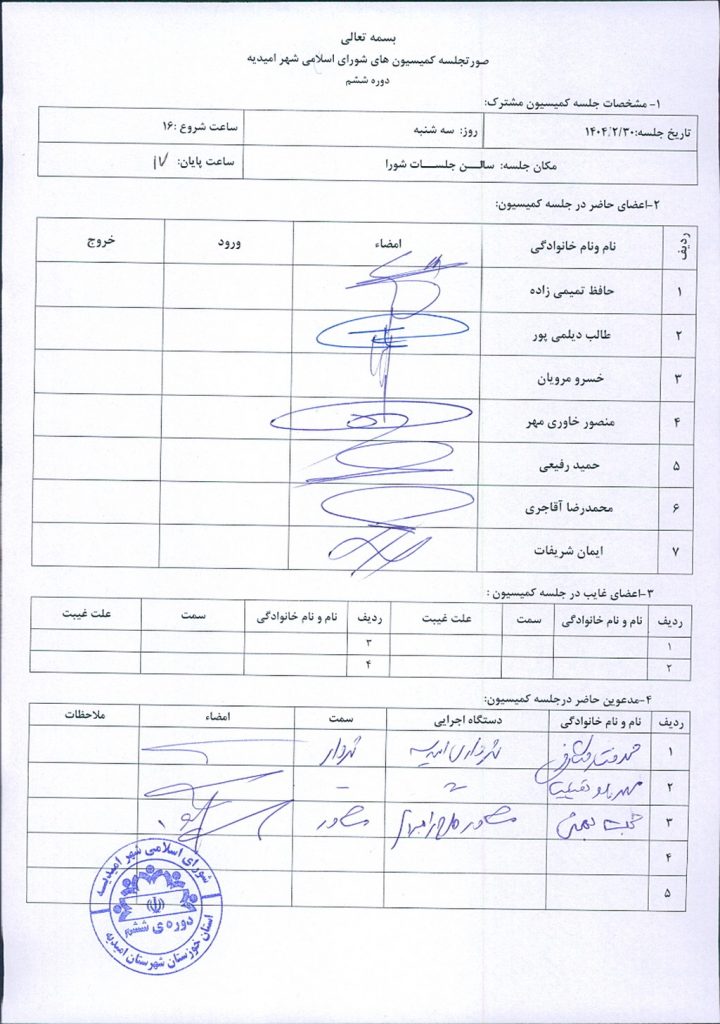 بسمه تعالی
صورتجلسه کمیسیون های شورای اسلامی شهر امیدیه
دوره ششم
۱- مشخصات جلسه کمیسیون مشترک:
تاریخ جلسه:۱۴۰۴/۲/۳۰ روز: سه شنبه ساعت شروع :۱۶
مکان جلسه: سالن جلسات شورا ساعت پایان: ۱۷
۲-اعضای حاضر در جلسه کمیسیون:
ردیف نام ونام خانوادگی امضاء ورود خروج
۱ حافظ تمیمی زاده
۲ طالب دیلمی پور
۳ خسرو مرویان
۴ منصور خاوری مهر
۵ حمید رفیعی
۶ محمدرضا آقاجری
۷ ایمان شریفات
۳-اعضای غایب در جلسه کمیسیون :
ردیف نام و نام خانوادگی سمت علت غیبت ردیف نام و نام خانوادگی سمت علت غیبت
۱ ۳
۲ ۴
۴-مدعوین حاضر درجلسه کمیسیون:
ردیف نام و نام خانوادگی دستگاه اجرایی سمت امضاء ملاحظات
۱ شهرداری امیدیه شهردار
۲
۳ مشاور مشاور
۴
۵
شورای اسلامی شهر امیدیه
دوره ی ششم
استان خوزستان شهرستان امیدیه